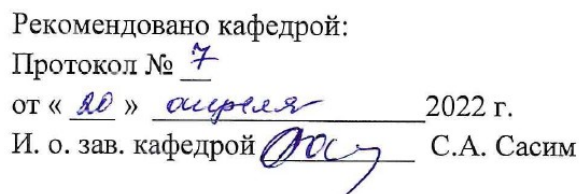 Рекомендовано кафедрой:
Протокол № 7
от « 20 » апреля 2022 г.
И. о. зав. кафедрой С.А. Сасим